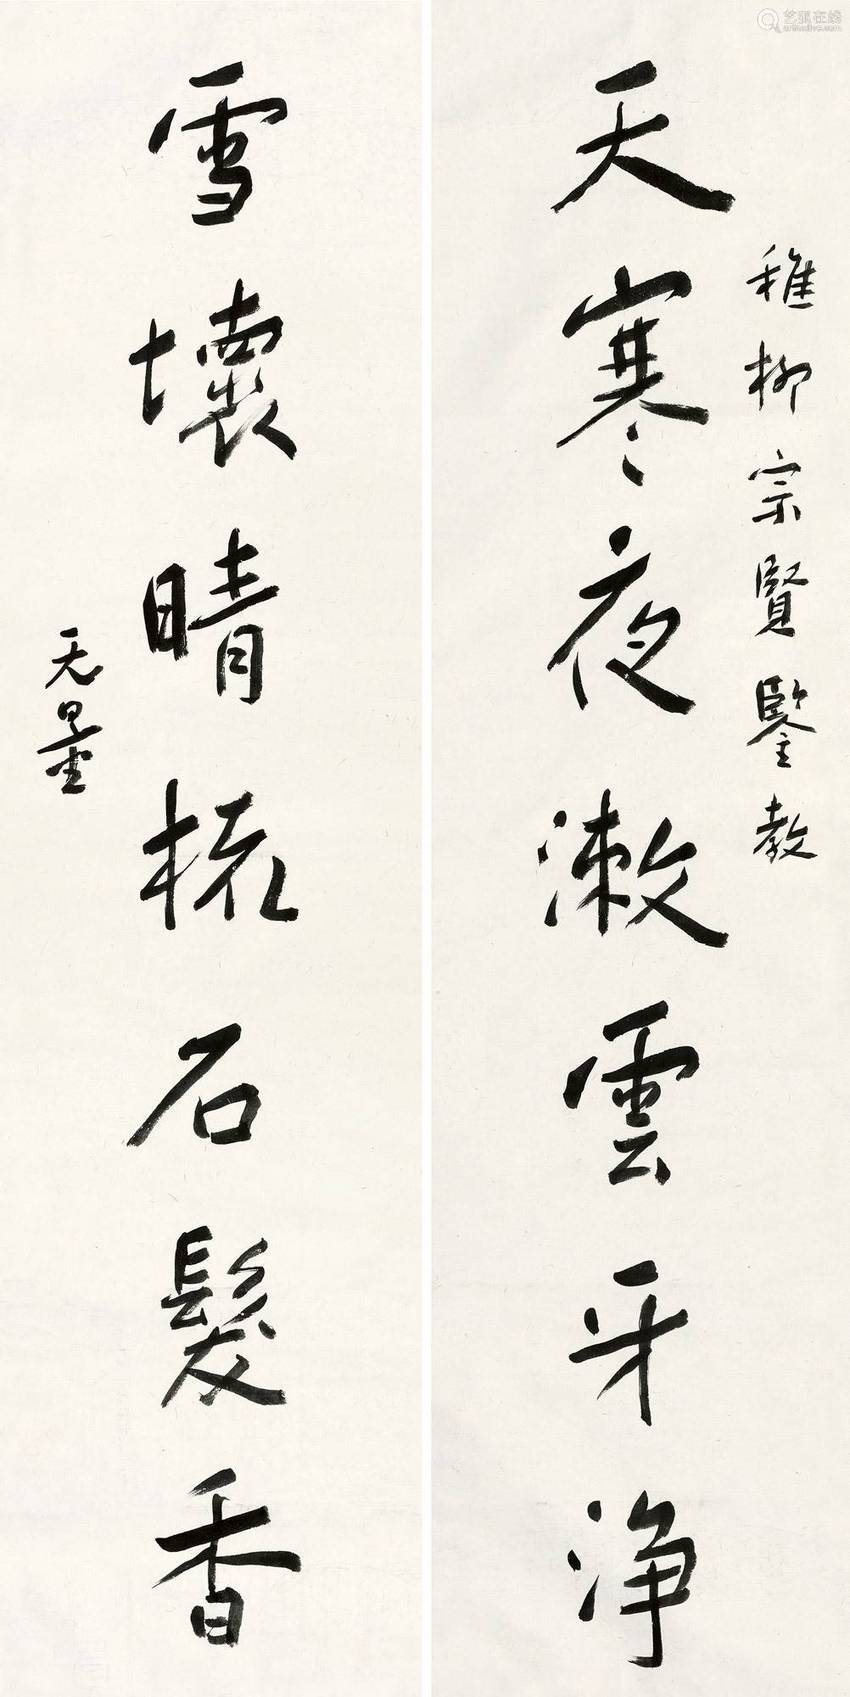 稚柳宗賢鑒教
天寒夜漱雲牙净
雪壞晴梳石髮香
无量
艺狐在线
artfoxlive.com